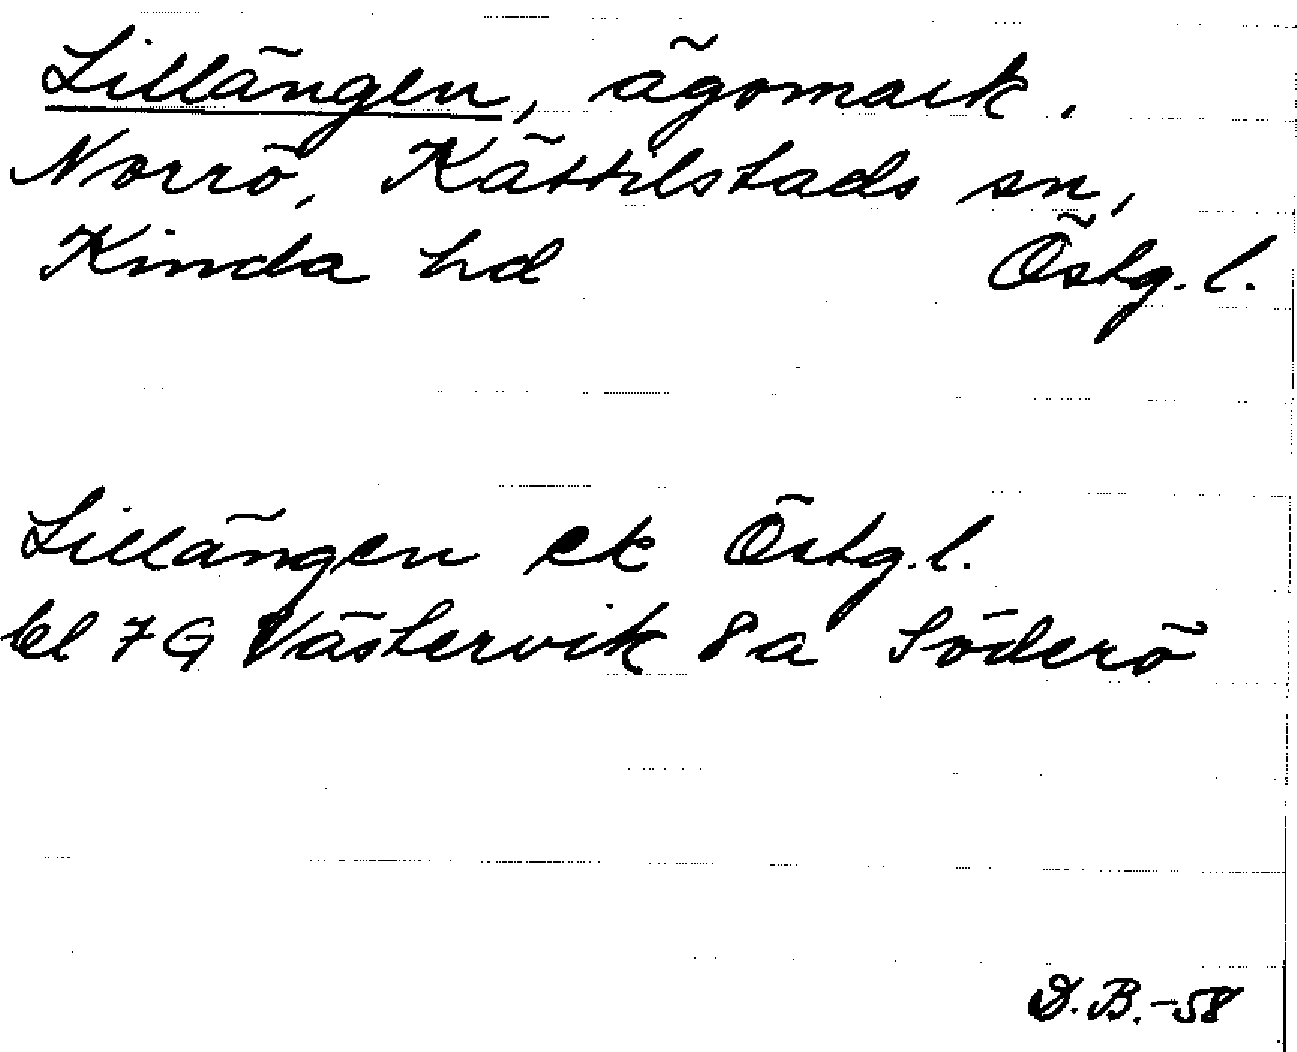 Lillängen, ägomark.
Norrö, Kättilstads sn,
Kinda hd Östg. l.
Lillängen ek Östg. l.
bl 7 G Västervik 8a Söderö
D. B. -58